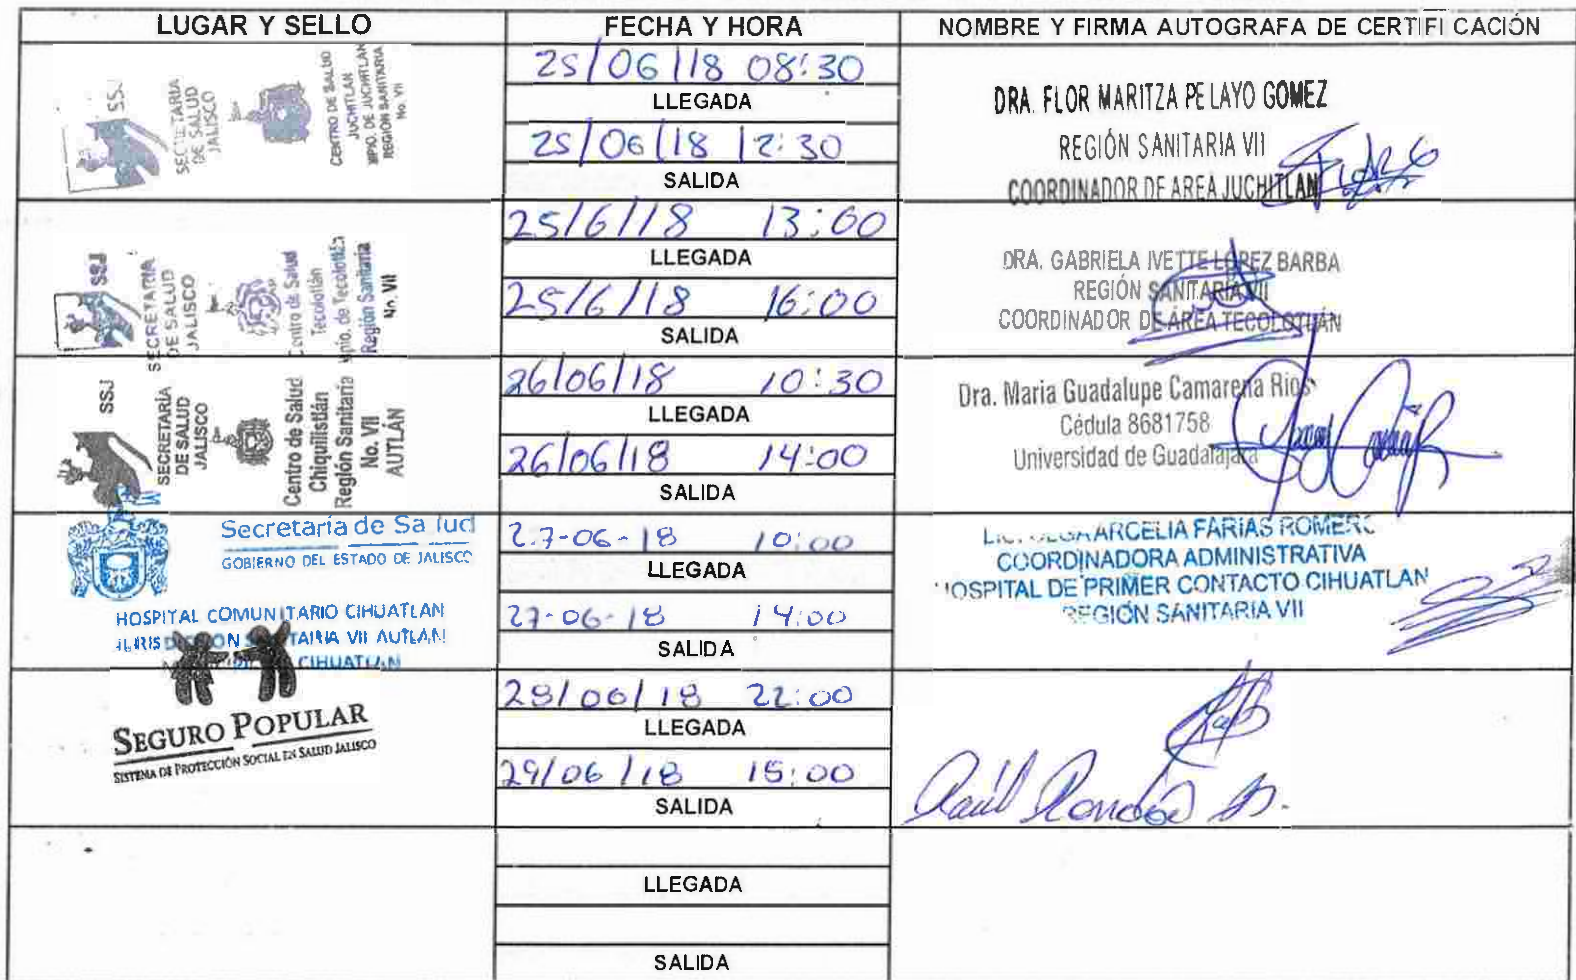 LUGAR Y SELLO
FECHA Y HORA
NOMBRE Y FIRMA AUTOGRAFA DE CERTIFICACIÓN
SSJ
SECRETARIA
DE SALUD
JALISCO
CENTRO DE SALUD
JUCHITLAN
MPIO. DE JUCHITLAN
REGION SANITARIA
No. VII
25/06/18 08:30
LLEGADA
25/06/18 12:30
SALIDA
DRA. FLOR MARITZA PELAYO GOMEZ
REGIÓN SANITARIA VII
COORDINADOR DE AREA JUCHITLAN
SSJ
SECRETARIA
DE SALUD
JALISCO
Centro de Salud
Tecolotlán
Mpio. de Tecolotlán
Región Sanitaria
No. VII
25/6/18 13:00
LLEGADA
25/6/18 16:00
SALIDA
DRA. GABRIELA IVETTE LOPEZ BARBA
REGIÓN SANITARIA VII
COORDINADOR DE ÁREA TECOLOTLÁN
SSJ
SECRETARÍA
DE SALUD
JALISCO
Centro de Salud
Chiquilistlán
Región Sanitaria
No. VII
AUTLÁN
26/06/18 10:30
LLEGADA
26/06/18 14:00
SALIDA
Dra. Maria Guadalupe Camarena Rios
Cédula 8681758
Universidad de Guadalajara
Secretaría de Salud
GOBIERNO DEL ESTADO DE JALISCO
HOSPITAL COMUNITARIO CIHUATLAN
VII AUTLAN
CIHUATLAN
27-06-18 10:00
LLEGADA
27-06-18 14:00
SALIDA
ARCELIA FARIAS ROMERO
COORDINADORA ADMINISTRATIVA
HOSPITAL DE PRIMER CONTACTO CIHUATLAN
REGIÓN SANITARIA VII
SEGURO POPULAR
SISTEMA DE PROTECCIÓN SOCIAL EN SALUD JALISCO
28/06/18 22:00
LLEGADA
29/06/18 15:00
SALIDA
Raúl
LLEGADA
SALIDA